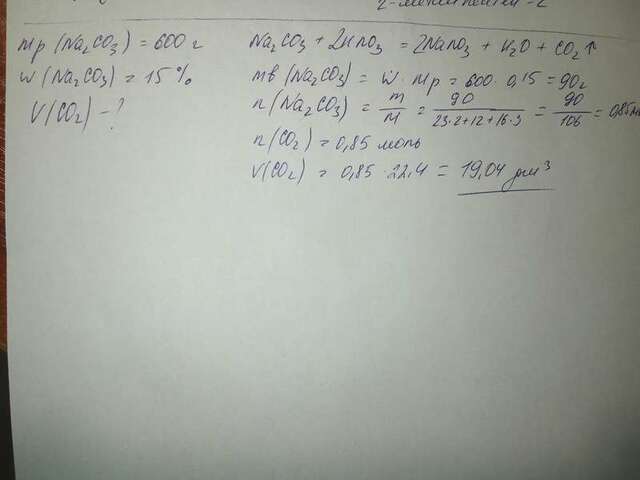 2-метилпентен-2
mр (Na₂CO₃) = 600 г
w (Na₂CO₃) = 15 %
V(CO₂) - ?
Na₂CO₃ + 2HNO₃ = 2NaNO₃ + H₂O + CO₂↑
mв (Na₂CO₃) = w · mр = 600 · 0,15 = 90г
n (Na₂CO₃) = m/M = 90/(23·2+12+16·3) = 90/106 = 0,85
n(CO₂) = 0,85 моль
V(CO₂) = 0,85 · 22,4 = 19,04 дм³